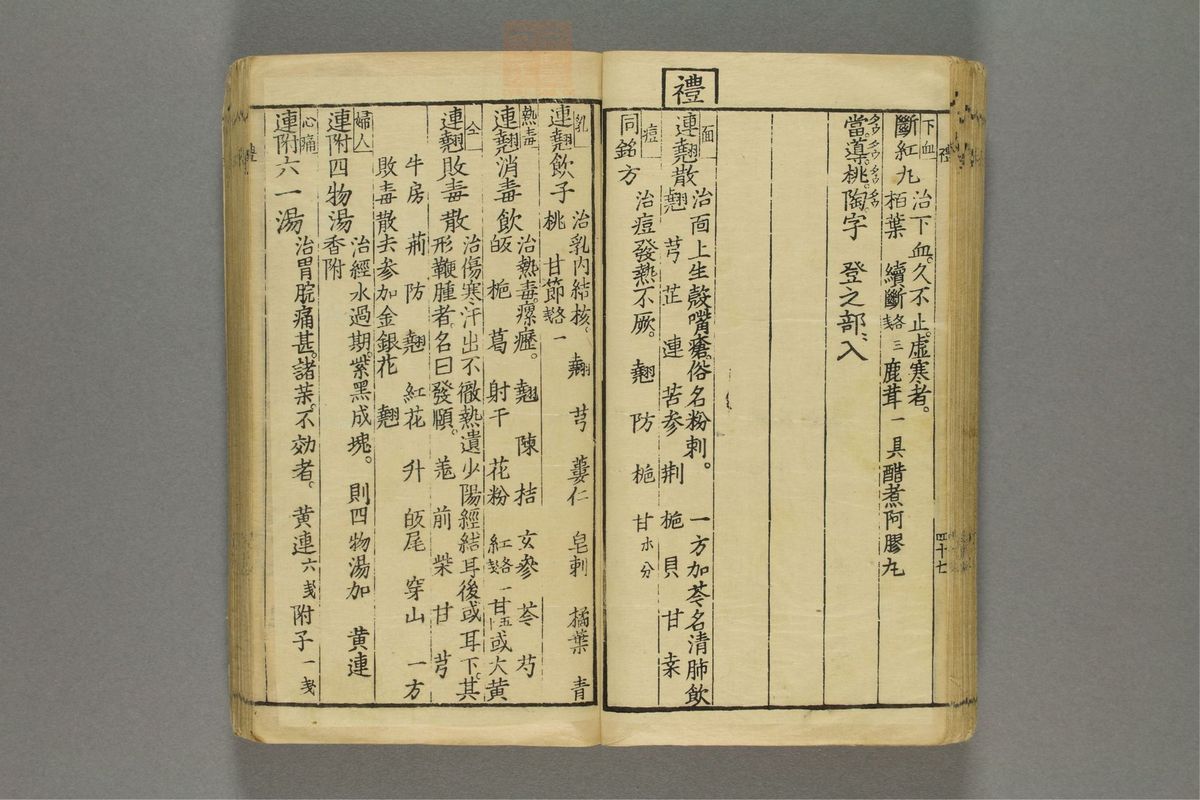 禮
四十七
下血
斷紅九 治下血。久不止。虛寒者。
栢葉 續斷 各三戔 鹿茸一具醋煮阿膠九
當。導。桃。陶字 登之部ニ入
タウ タウ タウ タウ
面
連翹散 治面上生殻嘴瘡。俗名粉刺。 一方加芩名清肺飲
翹 芎 芷 連 苦参 荆 梔 貝 甘 桒
痘
同銘方 治痘發熱不厥。 翹 防 梔 甘 水分
乳
連翹飲子 治乳内結核。 翹 芎 蔞仁 皂刺 橘葉 青
桃 甘節各一戔
熱毒
連翹消毒飲 治熱毒。瘰癧。 翹 陳 桔 玄參 芩 芍
皈 梔 葛 射干 花粉 紅各一戔 甘五 或大黄
仝
連翹敗毒散 治傷寒汗出不徹熱遺少陽經結耳後或耳下。其
形鞕腫者。名曰發頤。 羗 前 柴 甘 芎
牛房 荊 防 翹 紅花 升 皈尾 穿山 一方
敗毒散去参加金銀花 翹
婦人
連附四物湯 治經水過期。紫黑成塊。 則四物湯加 黄連
香附
心痛
連附六一湯 治胃脘痛甚。諸薬。不効者。 黄連六戔 附子一戔